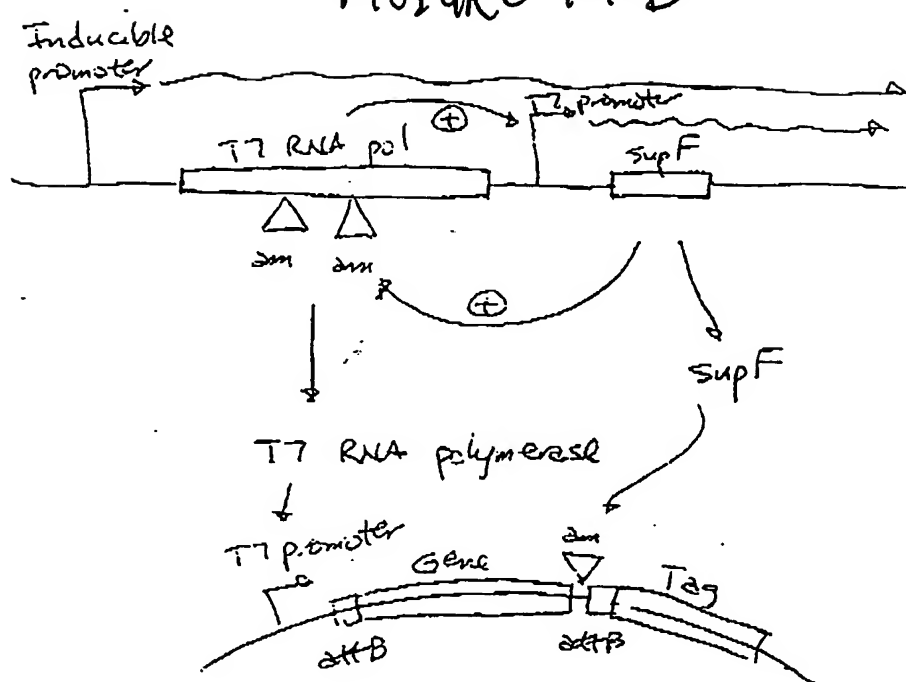 Inducible
promoter
T7 promoter
T7 RNA pol
+
supF
am
am
+
supF
T7 RNA polymerase
T7 promoter
Gene
am
Tag
attB
attB